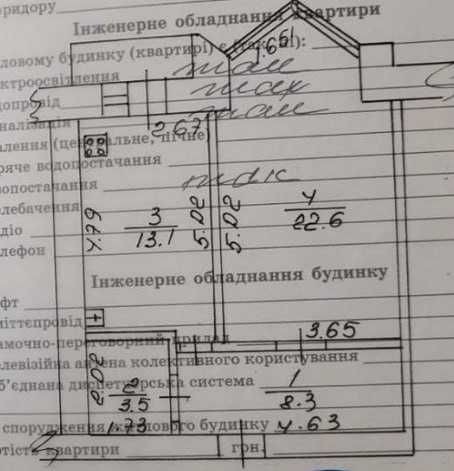 оридору
Інженерне обладнання квартири
ловому будинку (квартирі) є (так, ні):
ектроосвітлення так
допровід так
налізація так
алення (центральне, пічне)
ряче водопостачання
зопостачання так
елебачення
діо
елефон
1.65
2.67
4.79
3
13.1
5.02
5.02
4
22.6
Інженерне обладнання будинку
фт
міттєпровід
амочно-переговорний прилад
3.65
елевізійна антена колективного користування
б'єднана диспетчерська система
2.02
2
3.5
1.73
1
8.3
4.63
спорудження житлового будинку
ртість квартири грн.